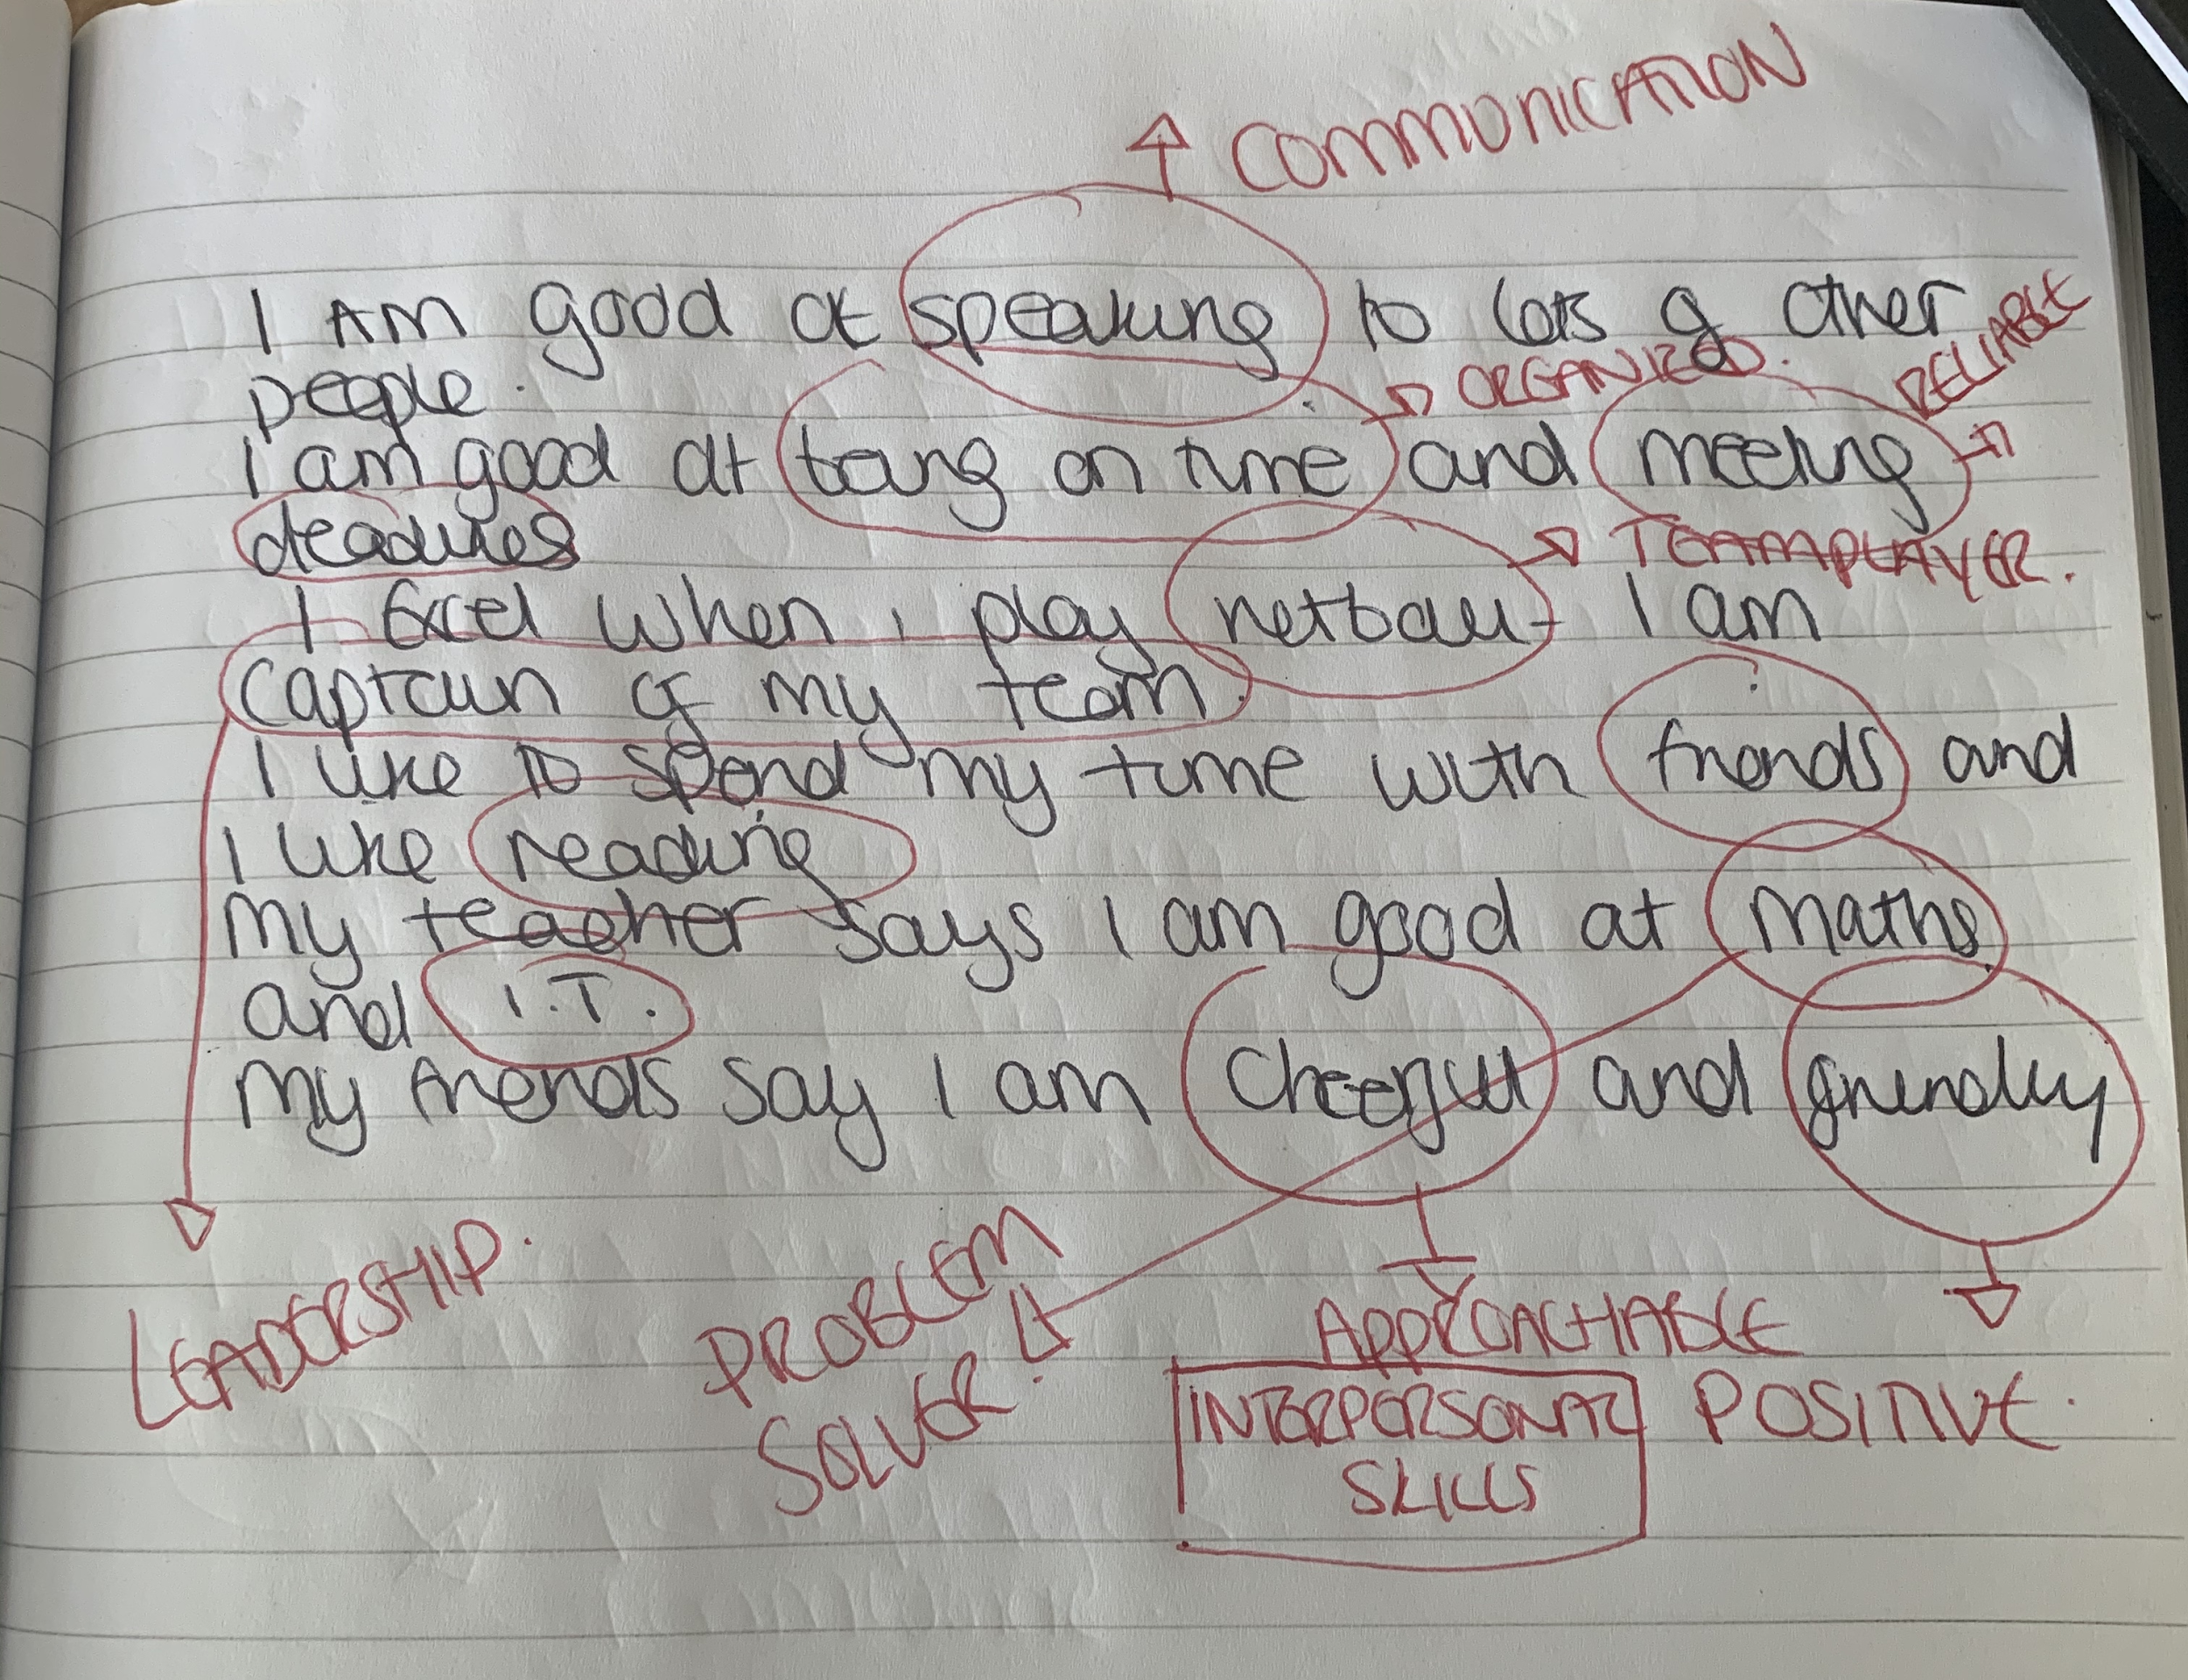 COMMUNICATION
I AM good at speaking to lots of other
RELIABLE
people.
ORGANIZED.
I am good at being on time and meeting
deadlines
TEAMPLAYER.
I Excel when i play netball I am
Captain of my team.
I like to spend my time with friends and
I like reading
My teacher says I am good at maths
and I.T.
My friends say I am cheerful and friendly
LEADERSHIP.
PROBLEM
SOLVER.
APPROACHABLE
INTERPERSONAL
SKILLS
POSITIVE.